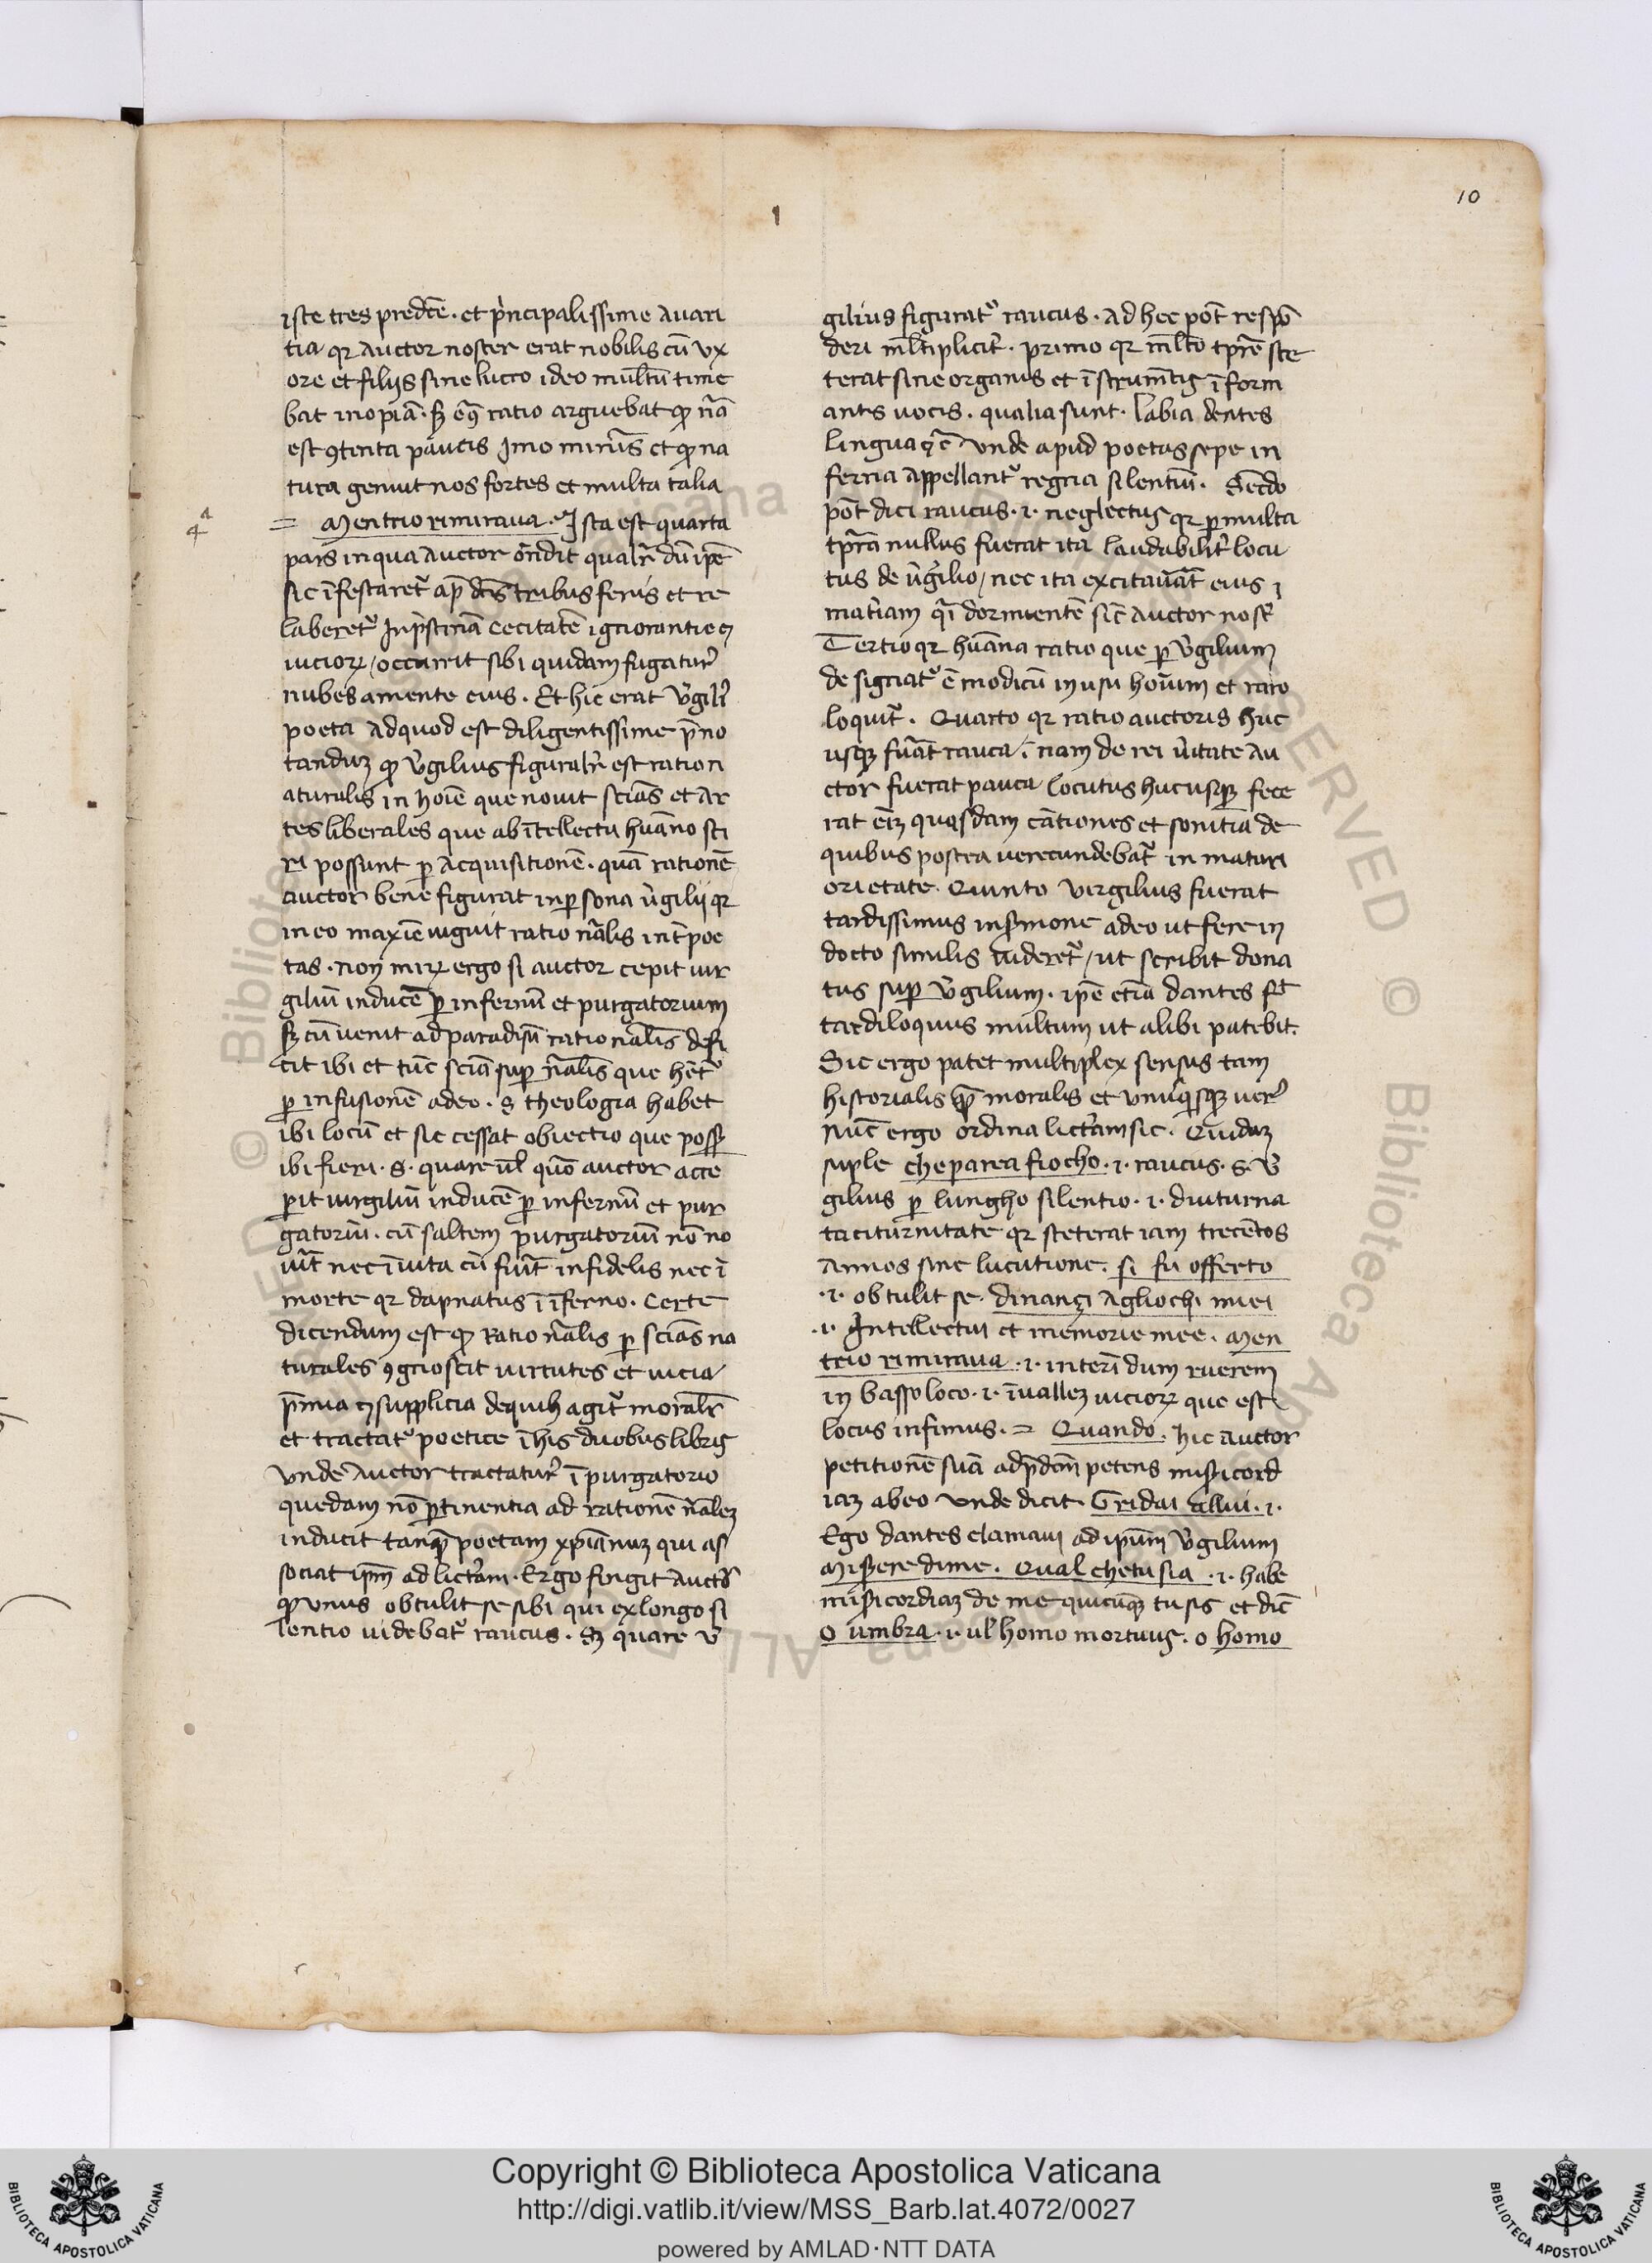 10
1
iste tres predcē. et prncipalissime Auari
tia qr Auctor noster erat nobilis cū vx
ore et filijs sine lucro ideo multū time
bat inopiā. sz ratio arguebat qp nrā
est 9tenta paucis Imo minus et qp na
tura genuit nos fortes et multa talia
4ᴬ
= Mentrio rimiraua. Ista est quarta
pars in qua Auctor ondit qualr dū ipe
sic īfestaret ap tribus feris et re
laberet In pstinā cecitatē ignorantie
uiciorꝝ / occurrit sibi quidam fugatur
nubes a mente eius. Et hic erat vgili
poeta Ad quod est diligentissime pno
tanduz qp vgilius figuralr est ratio n
aturalis in hoīe que nouit sciās et Ar
tes liberales que ab ītellectu huāno sci
ri possunt p Acquisitionē. quā rationē
Auctor bene figurat in psona ugilij qr
in eo maxīe uiguit ratio nalis int poe
tas. non mirꝝ ergo si auctor cepit uir
giliū inducē p infernū et purgatorium
sz cū uenit ad paradisū ratio nalis defi
cit ibi et tūc sciā sup nalis que het
p infusionē a deo. s theologia habet
ibi locū et sic cessat obiectio que poss
ibi fieri. s. quare ul quo auctor acce
pit uirgiliū inducē p infernū et pur
gatoriū. cū saltem purgatoriū nō no
uit nec ī uita cū fuit infidelis nec ī
morte qr dapnatus ī īferno. Certe
dicendum est qp Ratio nalis p sciās na
turales 9gnoscit uirtutes et uicia
pmia supplicia de quib agit moralr
et tractat poetice ī his duobus libris
vnde Auctor tractatur ī purgatorio
quedam nō ptinentia ad rationē nalez
inducit tanq poetam xpiānuz qui as
sociat ipm ad lictam. Ergo fingit Auctor
qp vnus obtulit se sibi qui ex longo si
lentio uidebat raucus. Sz quare v
gilius figurat raucus. Ad hec pot respō
deri mltiplicit. primo qr mlto tpre ste
terat sine organis et īstrumtis īform
antis uocis. qualia sunt. labia dentes
lingua vnde apud poetas sepe in
ferna Appellant regna silentiū. Secdo
pot dici raucus. i. neglectus qr p multa
tpra nullus fuerat ita laudabilit locu
tus de ugilio / nec ita excitauat eius
matiam qi dormientē sic Auctor nost
Tertio qr huāna ratio que p vgilium
designat ē modicū in usu hoium et raro
loquit. Quarto qr ratio auctoris huc
usqz fuāt rauca. nam de rei uitate Au
ctor fuerat pauca locutus huc usqz fece
rat eiz quasdam cātiones et sonitia de
quibus postea uerecundebat in maturi
ori etate. Quinto virgilius fuerat
tardissimus in smone adeo ut fere in
docto similis uideret / ut scribit dona
tus sup vgilium. ipe etia dantes ft
tardiloquus multum ut alibi patebit.
Sic ergo patet multiplex sensus tam
historialis qp moralis et vnusqsqz uer
nūc ergo ordina lictam sic. Quidaz
suple che parea fiocho. i. raucus. s. v
gilius p lungho silentio. i. diuturna
taciturnitate qr steterat iam trecētos
Annos sine lucutione. si fu offerto
.i. obtulit se. dinançi Agliochi miei
.i. Intellectui et memorie mee. Men
trio rimiraua. i. interī dum ruerem
in basso loco. i. ī uallez uiciorꝝ que est
locus infimus. = Quando. hic auctor
petitionē suā ad pdcm petens misicord
iaz ab eo vnde dicit. Gridai allui. i.
Ego dantes clamaui ad ipum vgilium
Misere di me. Qual che tu sia. i. habe
misicordiaz de me quicunqz tu sis et dic
o umbra. i. ul homo mortuus. o homo
Copyright © Biblioteca Apostolica Vaticana
http://digi.vatlib.it/view/MSS_Barb.lat.4072/0027
powered by AMLAD·NTT DATA
BIBLIOTECA APOSTOLICA VATICANA
BIBLIOTECA APOSTOLICA VATICANA